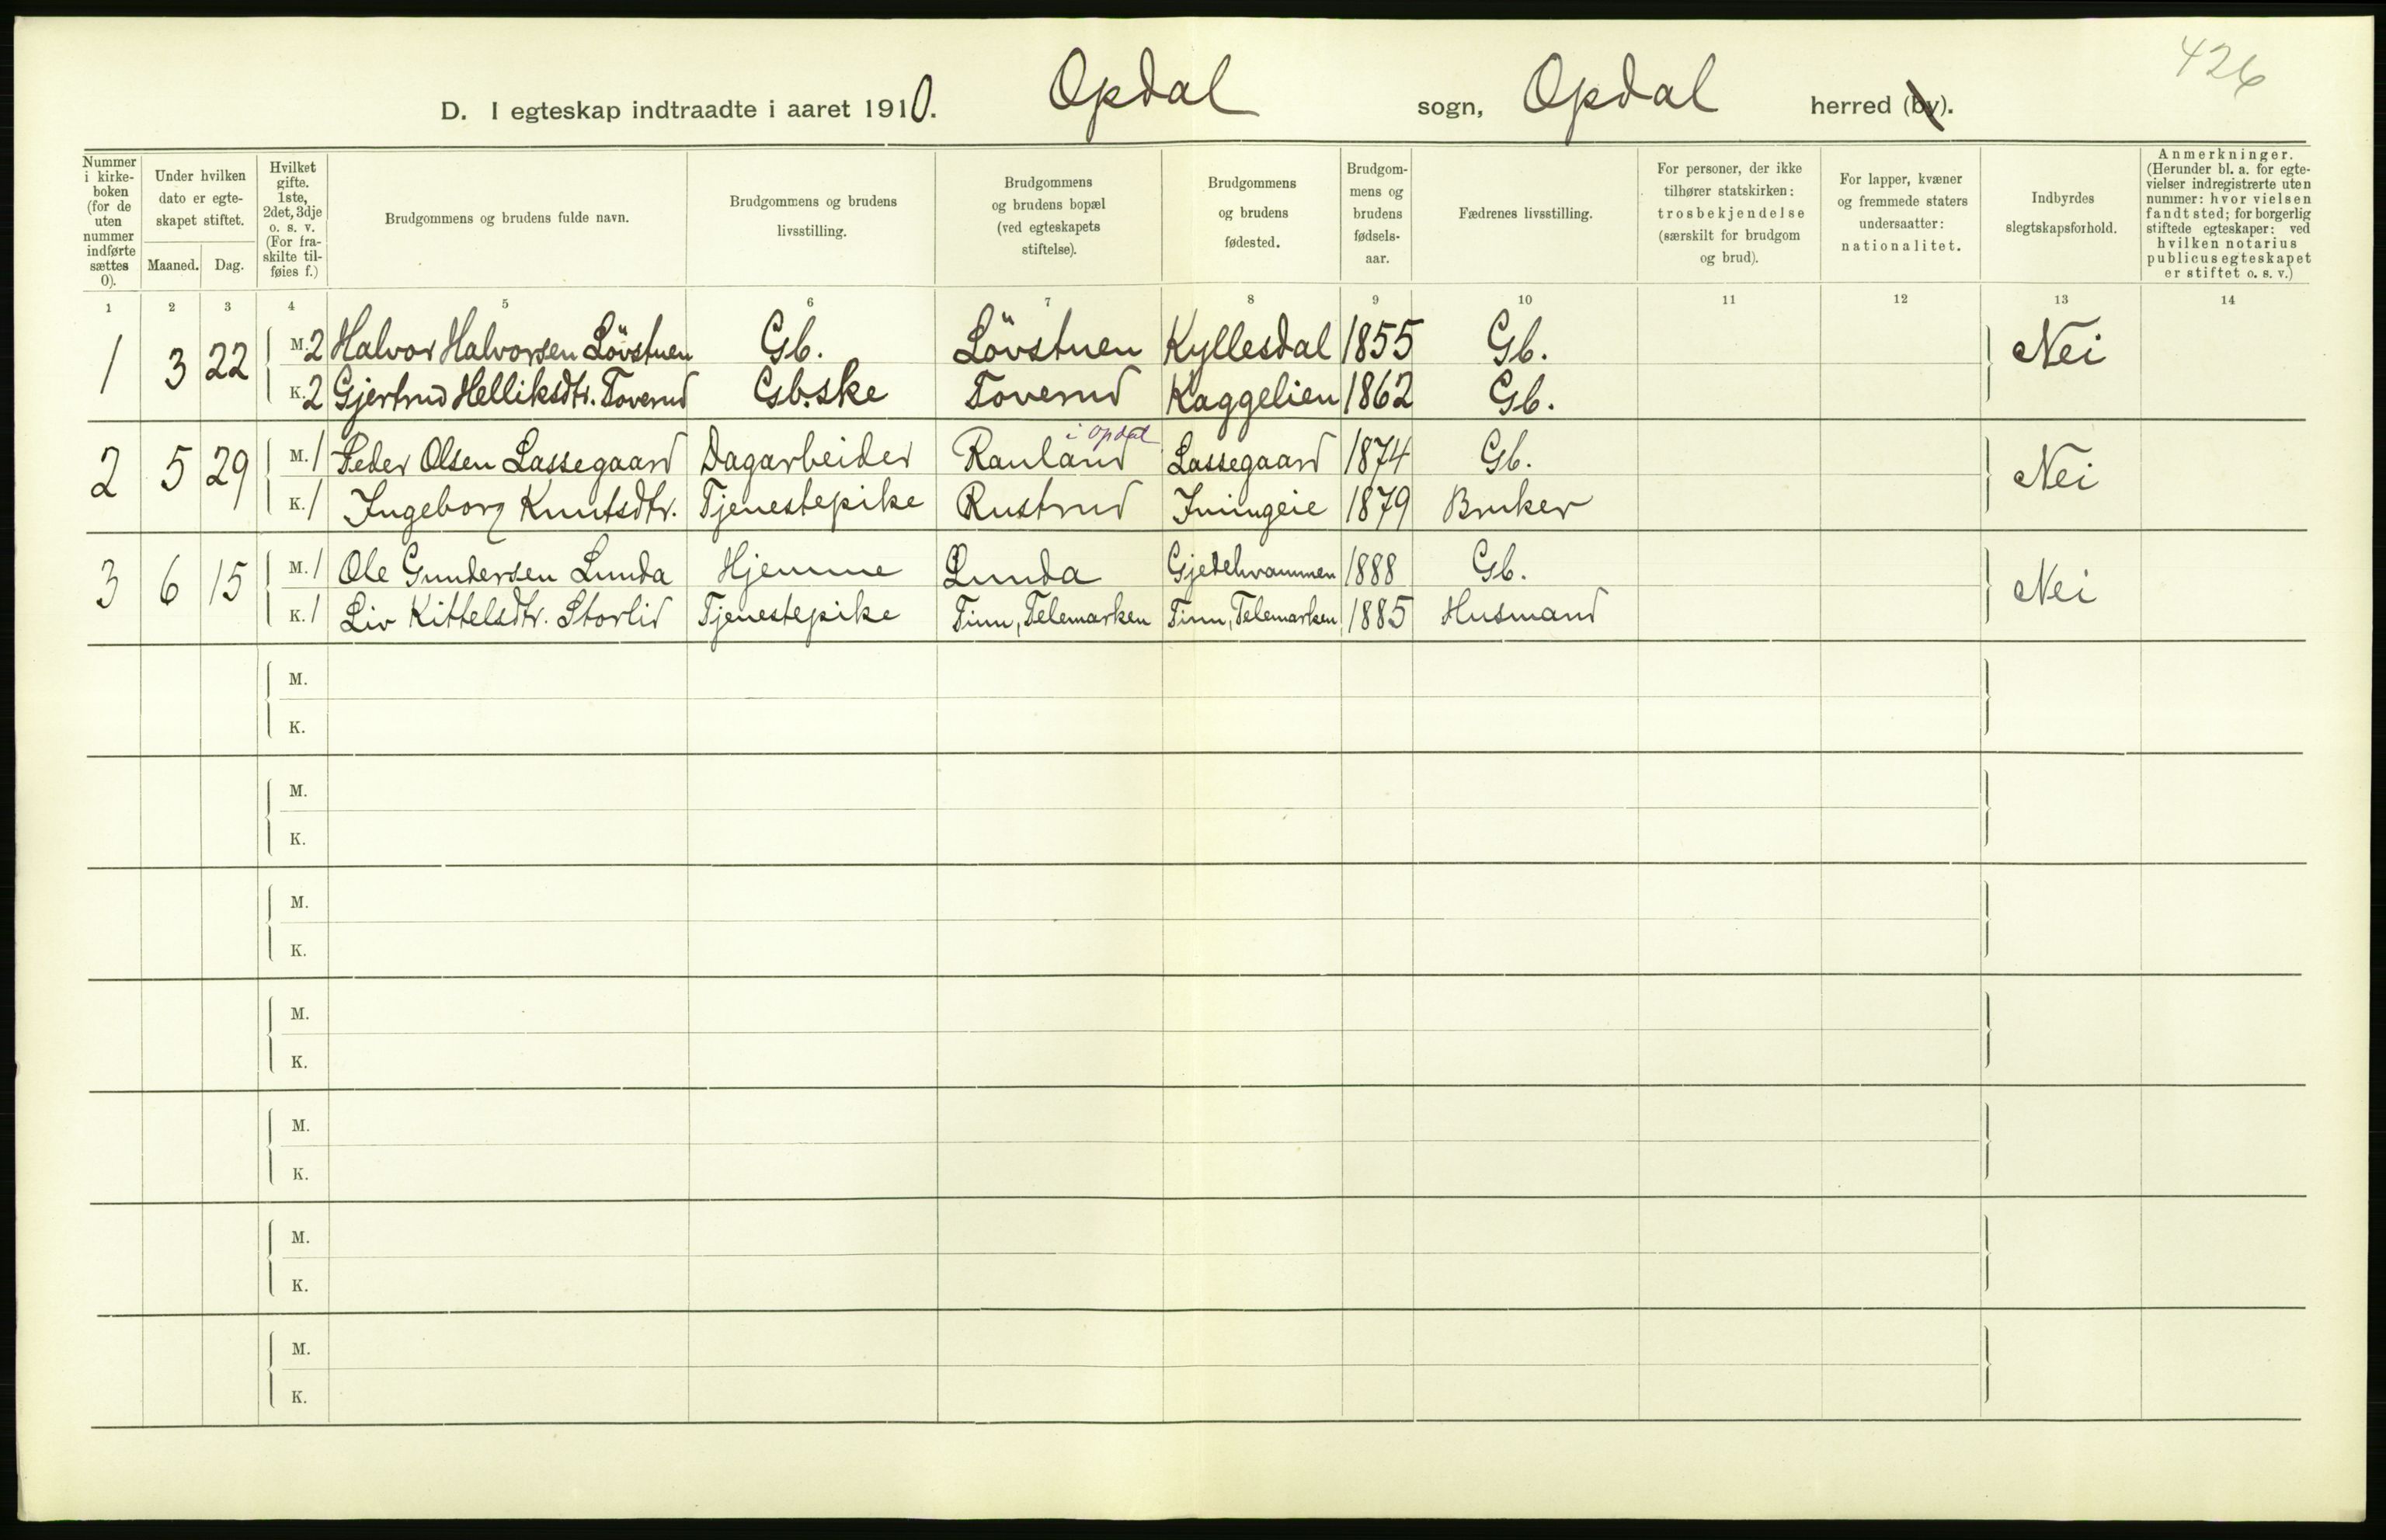 426
D. I egteskap indtraadte i aaret 1910. Opdal sogn, Opdal herred (by).
Nummer i kirke-boken (for de uten nummer indførte sættes 0).
Under hvilken dato er egte-skapet stiftet.
Maaned. Dag.
Hvilket gifte. 1ste, 2det, 3dje o. s. v. (For fra-skilte til-føies f.)
Brudgommens og brudens fulde navn.
Brudgommens og brudens livsstilling.
Brudgommens og brudens bopæl (ved egteskapets stiftelse).
Brudgommens og brudens fødested.
Brudgom-mens og brudens fødsels-aar.
Fædrenes livsstilling.
For personer, der ikke tilhører statskirken: trosbekjendelse (særskilt for brudgom og brud).
For lapper, kvæner og fremmede staters undersaatter: nationalitet.
Indbyrdes slegtskapsforhold.
Anmerkninger. (Herunder bl. a. for egte-vielser indregistrerte uten nummer: hvor vielsen fandt sted; for borgerlig stiftede egteskaper: ved hvilken notarius publicus egteskapet er stiftet o. s. v.)
1 2 3 4 5 6 7 8 9 10 11 12 13 14
1 3 22 M. 2 Halvor Halvorsen Lövstuen Gb. Lövstuen Kyllesdal 1855 Gb. Nei
K. 2 Gjertrud Helliksdtr. Toverud Gb.ske Toverud Kaggelien 1862 Gb.
2 5 29 M. 1 Peder Olsen Lassegaard Dagarbeider Rauland i Opdal Lassegaard 1874 Gb. Nei
K. 1 Ingeborg Knutsdtr. Tjenestepike Rustrud 1879 Bruker
3 6 15 M. 1 Ole Gundersen Lunda Hjemme Lunda Gjedehvammen 1888 Gb. Nei
K. 1 Liv Kittelsdtr. Storlid Tjenestepike Tinn, Telemarken Tinn, Telemarken 1885 Husmand
M.
K.
M.
K.
M.
K.
M.
K.
M.
K.
M.
K.
M.
K.